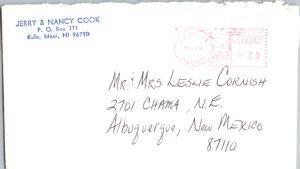 JERRY & NANCY COOK
P. O. Box 371
Kula, Maui, HI 96790
Mr. & Mrs. Leslie Cornish
2701 Chama, N.E.
Albuquerque, New Mexico
87110